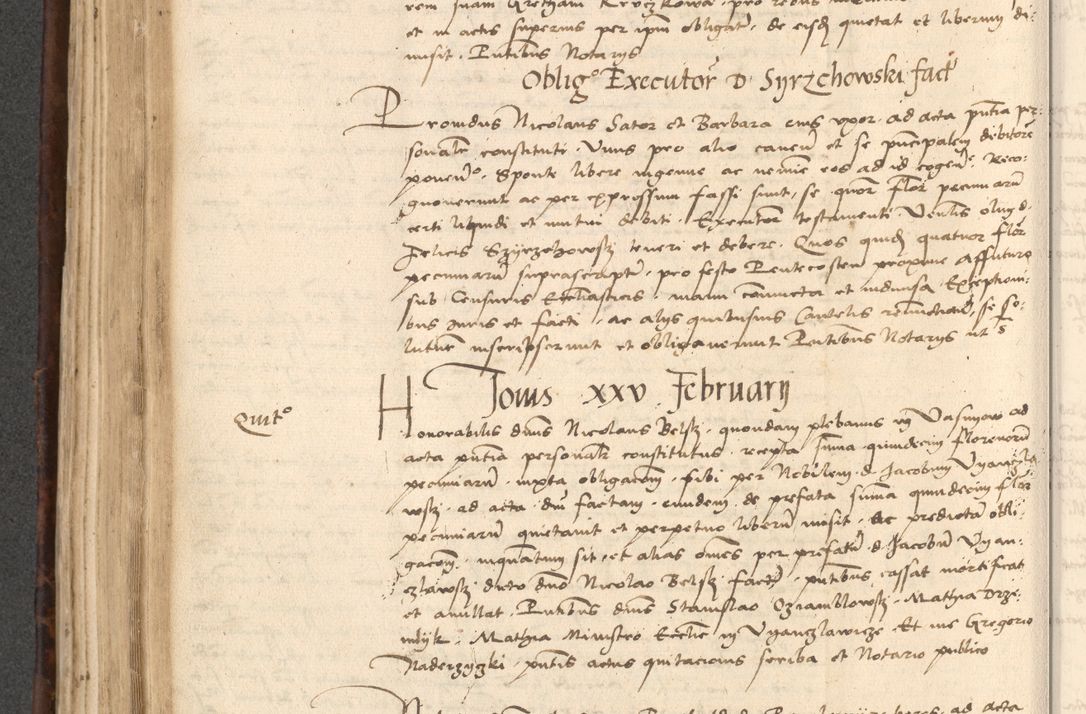 rem suam Gretham Krvczkowa pro rebus
et in actis superius per ipm obligatis, de eisd quietat et liberum di-
misit. Pntibus Notarijs
Oblig° Executor D. Syrzchowski fact
Prouidus Nicolaus Sator et Barbara eius vxor ad acta pntia per-
sonalr constituti. Vnus pro alio cauen et se principalem debitore
ponen°. Sponte libere ingenue ac nemine eos ad id cogen. Reco-
gnouerunt ac per expressum fassi sunt, se quor flor pecuniaru
certi liquidi et mutui debiti. Executor testamenti. Venlis olim d.
Felicis Szyrzchowsky teneri et debere. Quos quid quatuor flor
pecuniaru suprascript, pro festo Pentecosten proxime affuturo
sub Censuris Ecclesiasticis, manu coniuncta et indiuisa Exceptioni-
bus Juris et facti, ac alijs quibusuis Cautelis, se so-
luturu inscripserunt et obligauerunt Pntibus Notarijs ut s
Jouis xxv February
Quit°
Honorabilis dnus Nicolaus Belsky quondam plebanus in Vasnyow ad
acta pntia personalr constitutus, recepta suma quindecim florenoru
pecuniaru iuxta obligacoem, sibi per Nobilem d. Jacobum Vyanczla-
wsky ad acta factam, eundem de prefata suma quindecim flor
pecuniaru quietauit et perpetuo liberu misit. Ac predicta obli-
gacoem, inquantum sit, et alias omes per prefatu d. Jacobu Vyan-
czlawsky dicto dno Nicolao Belsky fact, pntibus cassat mortificat
et anullat. Pntibus dnis Stanislao Oziamblowsky. Mathia Drze-
mlyk. Mathia Ministro Ecclie in Vyanczlawicze. Et me Gregorio
Naderzynski pntis actus quitacionis scriba et Notario publico